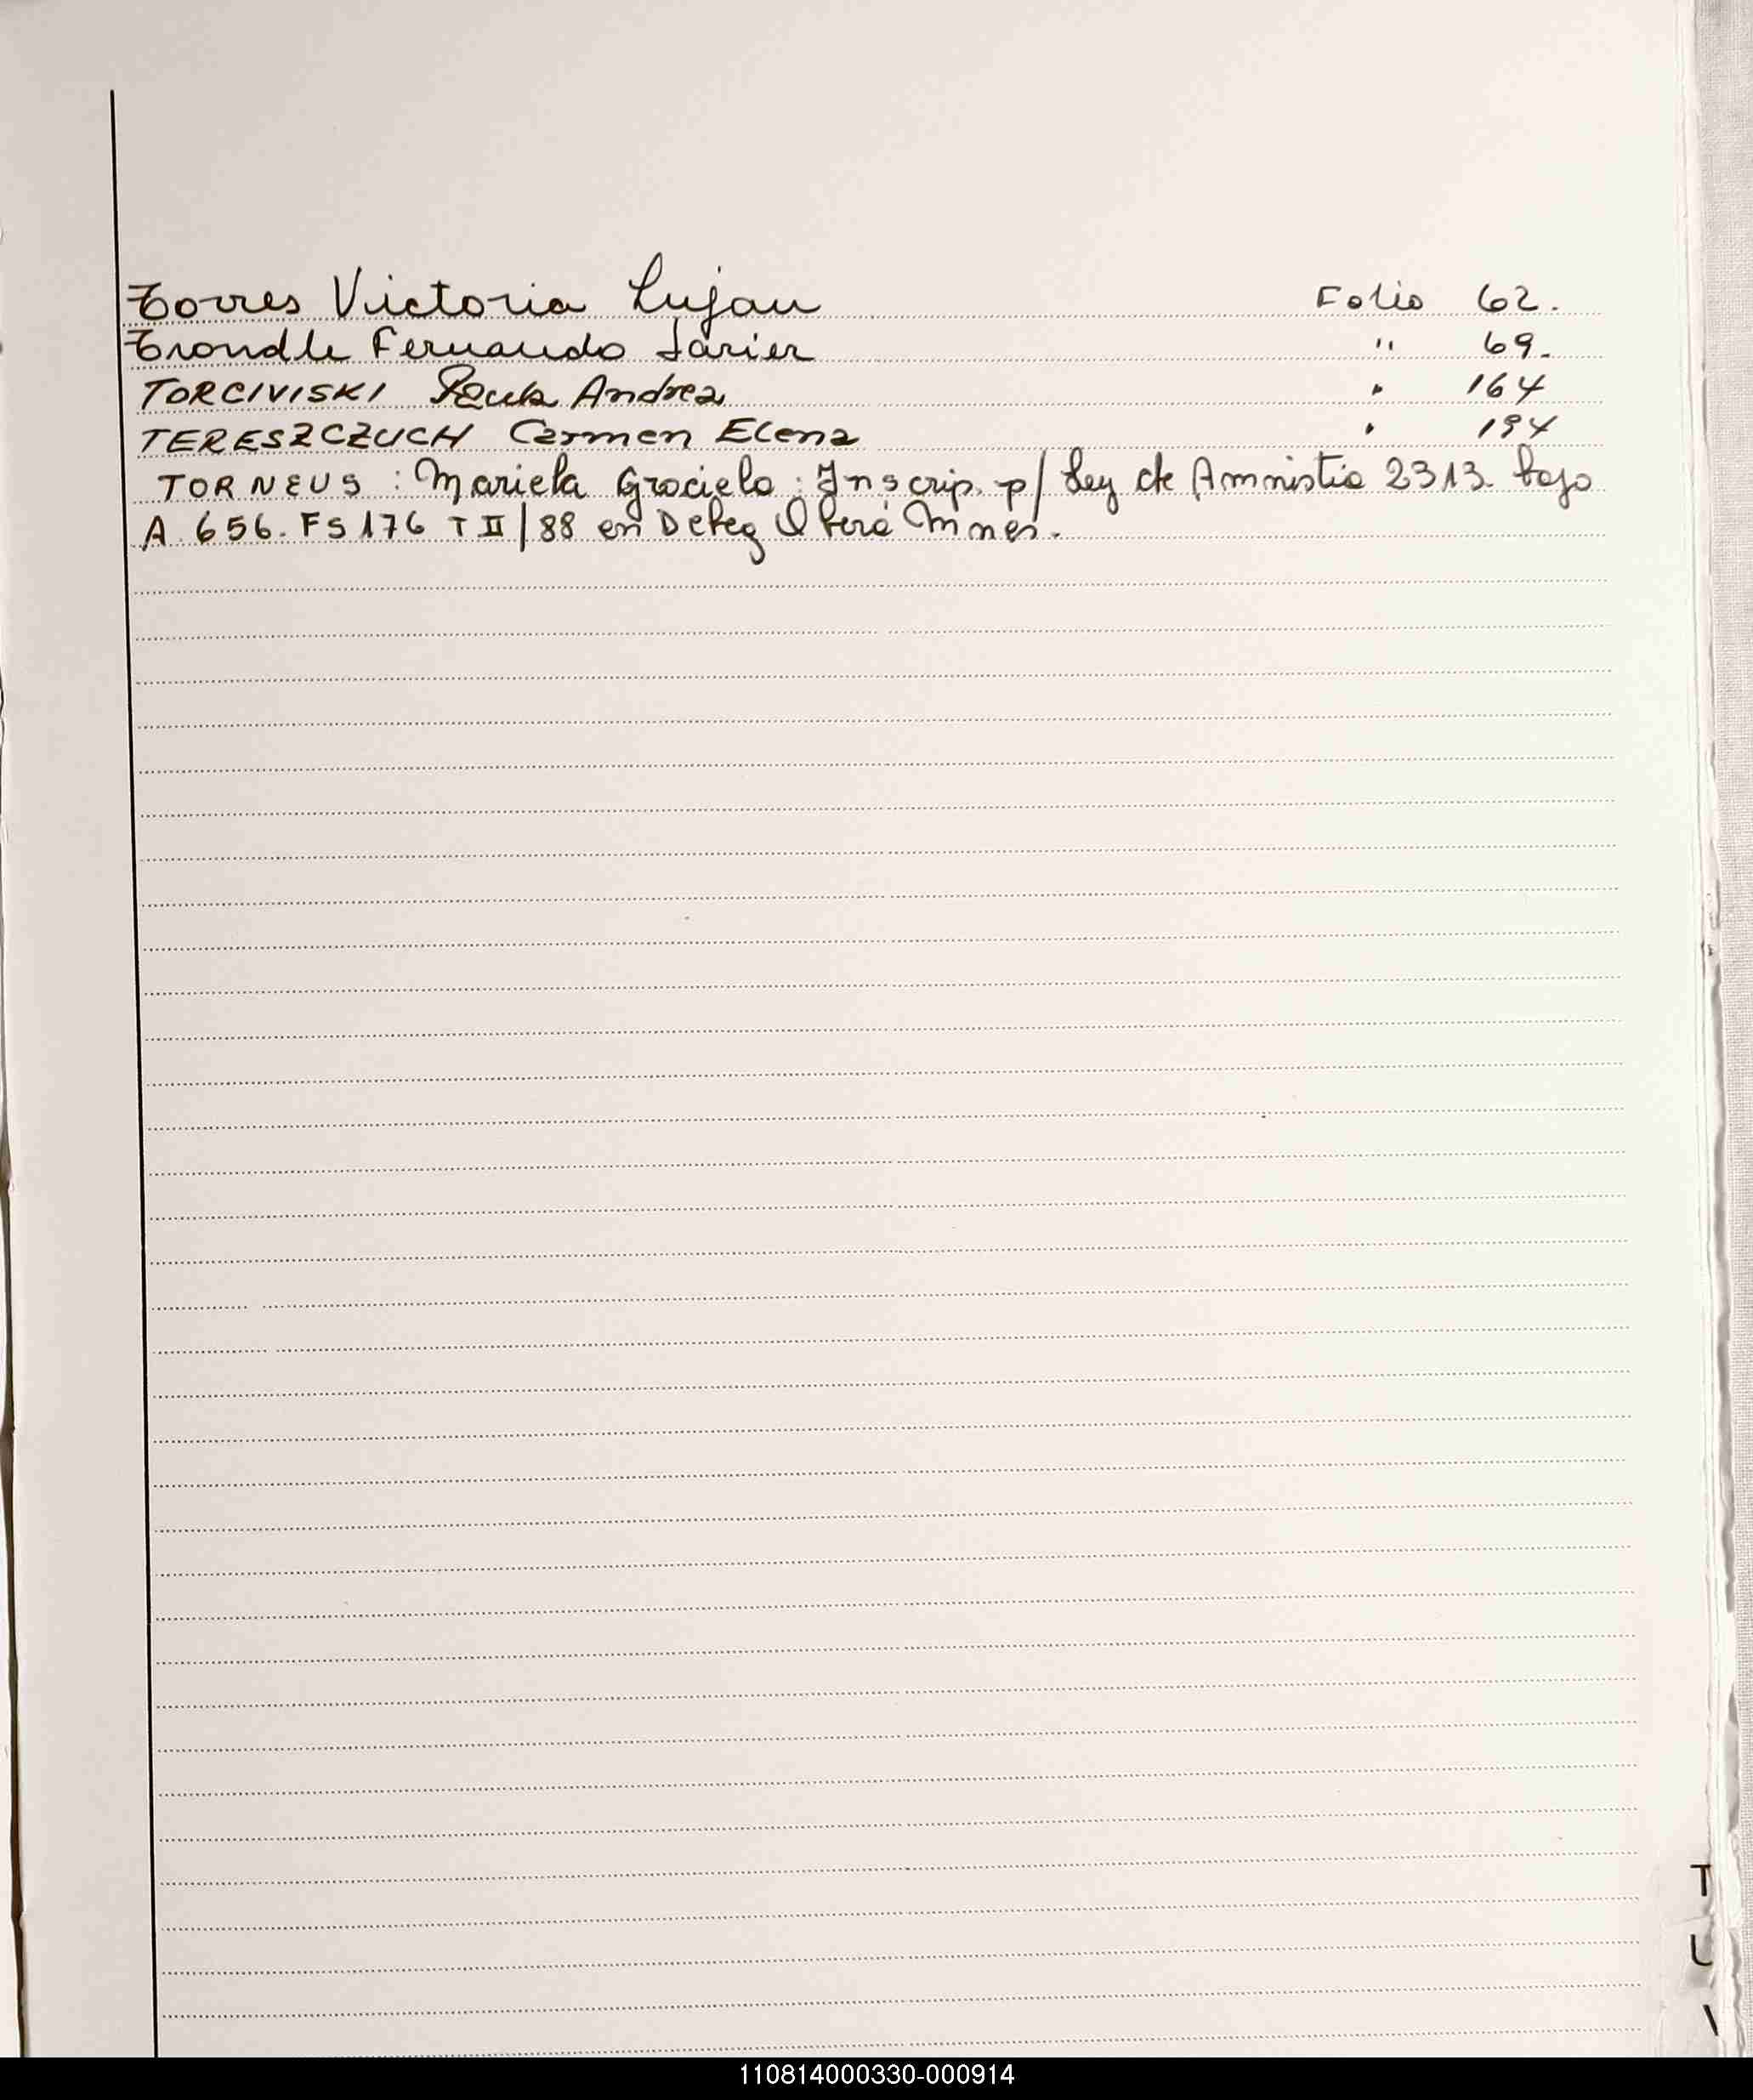 Torres Victoria Lujan Folio 62.
Trondle Fernando Javier " 69.
TORCIVISKI Paula Andrea " 164
TERESZCZUCH Carmen Elena " 194
TORNEUS : Mariela Graciela : Inscrip. p/ Ley de Amnistia 2313. bajo
A. 656. Fs 176 T II/88 en Deleg Oberá Mnes.
T
U
V
110814000330-000914